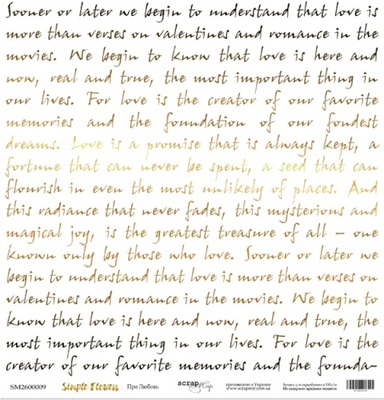 Sooner or later we begin to understand that love is
more than verses on valentines and romance in the
movies. We begin to know that love is here and
now, real and true, the most important thing in
our lives. For love is the creator of our favorite
memories and the foundation of our fondest
dreams. Love is a promise that is always kept, a
fortune that can never be spent, a seed that can
flourish in even the most unlikely of places. And
this radiance that never fades, this mysterious and
magical joy, is the greatest treasure of all – one
known only by those who love. Sooner or later we
begin to understand that love is more than verses on
valentines and romance in the movies. We begin to
know that love is here and now, real and true, the
most important thing in our lives. For love is the
creator of our favorite memories and the founda-
SM2600009 Simple Flowers Про Любовь scrap